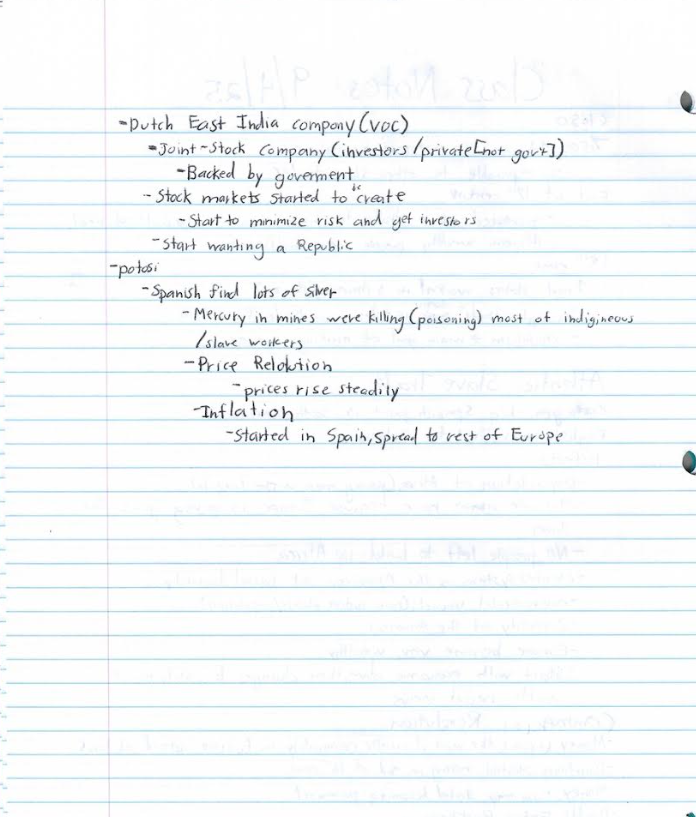 -Dutch East India company (VOC)
-Joint-Stock company (investors/private[not gov't])
-Backed by goverment
- Stock markets started to be create
-Start to minimize risk and get investors
-Start wanting a Republic
-potosi
-Spanish find lots of silver
-Mercury in mines were killing (poisoning) most of indigineous
/slave workers
-Price Relolution
-prices rise steadily
-Inflation
-Started in Spain, spread to rest of Europe